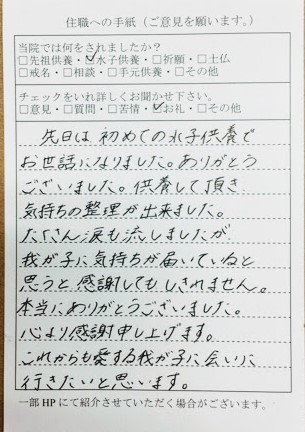 住職への手紙（ご意見を願います。）
当院では何をされましたか？
□先祖供養・☑水子供養・□祈願・□土仏
□戒名・□相談・□手元供養・□その他
チェックをいれ詳しくお聞かせ下さい。
□意見・□質問・□苦情・☑お礼・□その他
先日は初めての水子供養で
お世話になりました。ありがとう
ございました。供養して頂き
気持ちの整理が出来ました。
たくさん涙も流しましたが
我が子に気持ちが届いていると
思うと感謝してもしきれません。
本当にありがとうございました。
心より感謝申し上げます。
これからも愛する我が子に会いに
行きたいと思います。
一部HPにて紹介させていただく場合がございます。